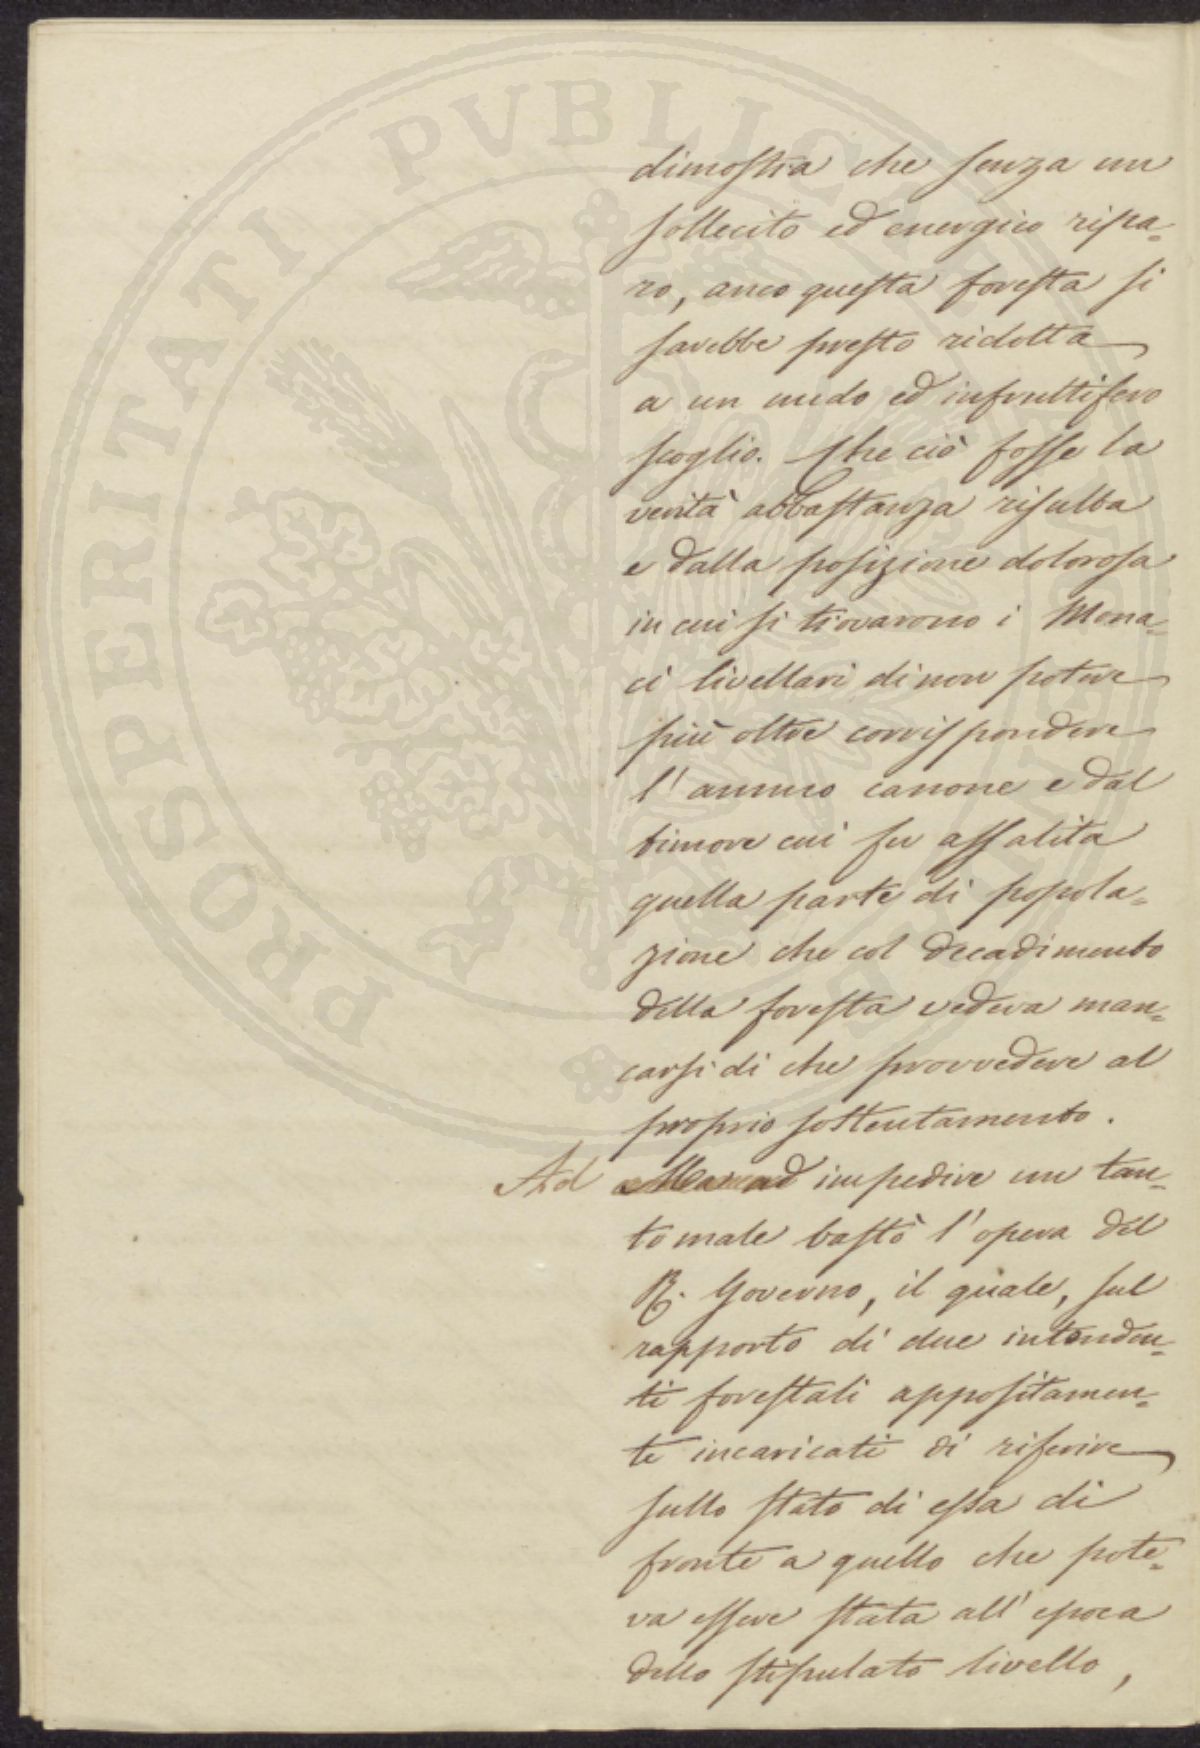 PROSPERITATI PVBLICAE AVGENDAE
dimostra che senza un
sollecito ed energico ripa=
ro, anco questa foresta si
sarebbe presto ridotta
a un nudo ed infruttifero
scoglio. Che ciò fosse la
verità abbastanza risulta
e dalla posizione dolorosa
in cui si trovarono i Mona=
ci livellari di non potere
più oltre corrispondere
l'annuo canone e dal
timore cui fu assalita
quella parte di popola=
zione che col decadimento
della foresta vedeva man=
carsi di che provvedere al
proprio sostentamento.
Ad Ma ad impedire un tan=
to male bastò l'opera del
R. Governo, il quale, sul
rapporto di due intenden=
ti forestali appositamen=
te incaricati di riferire
sullo stato di essa di
fronte a quello che pote=
va essere stata all'epoca
dello stipulato livello,